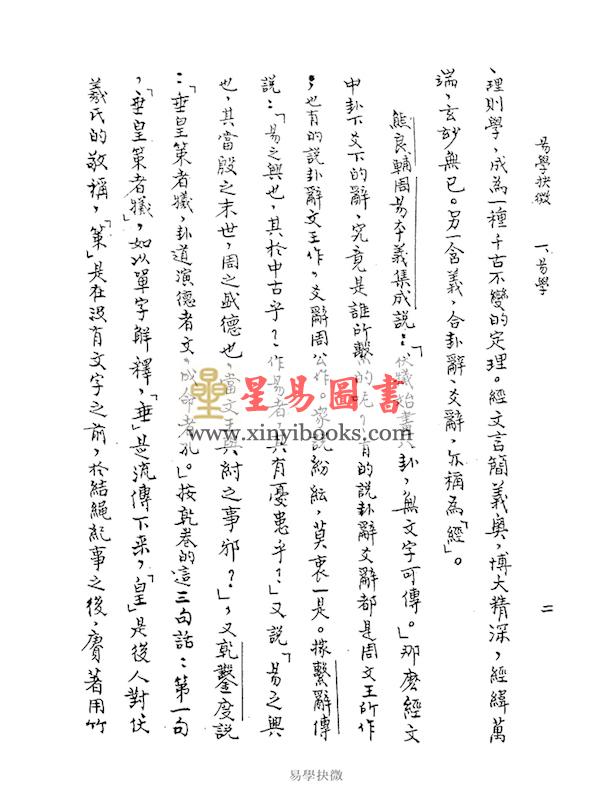 易學抉微　一、易學　二
、理則學，成為一種千古不變的定理。經文言簡義奧，博大精深，經緯萬
端，玄妙無已。另一含義，合卦辭、爻辭，亦稱為「經」。
熊良輔周易本義集成說：「伏犧始畫八卦，無文字可傳。」那麽經文
中卦下爻下的辭，究竟是誰所繫的呢，有的說卦辭爻辭都是周文王所作
，也有的說卦辭文王作，爻辭周公作。眾說紛紜，莫衷一是。據繫辭傳
說：「易之興也，其於中古乎？作易者，其有憂患乎？」又說「易之興
也，其當殷之末世，周之盛德也，當文王與紂之事邪？」，又乾鑿度說
：「垂皇策者犧，卦道演德者文，成命者孔。」按乾巻的這三句話：第一句
，「垂皇策者犧」，如以單字解釋，「垂」是流傳下來，「皇」是後人對伏
羲氏的敬稱，「策」是在沒有文字之前，於結繩紀事之後，賡著用竹
星易圖書
www.xinyibooks.com
易學抉微